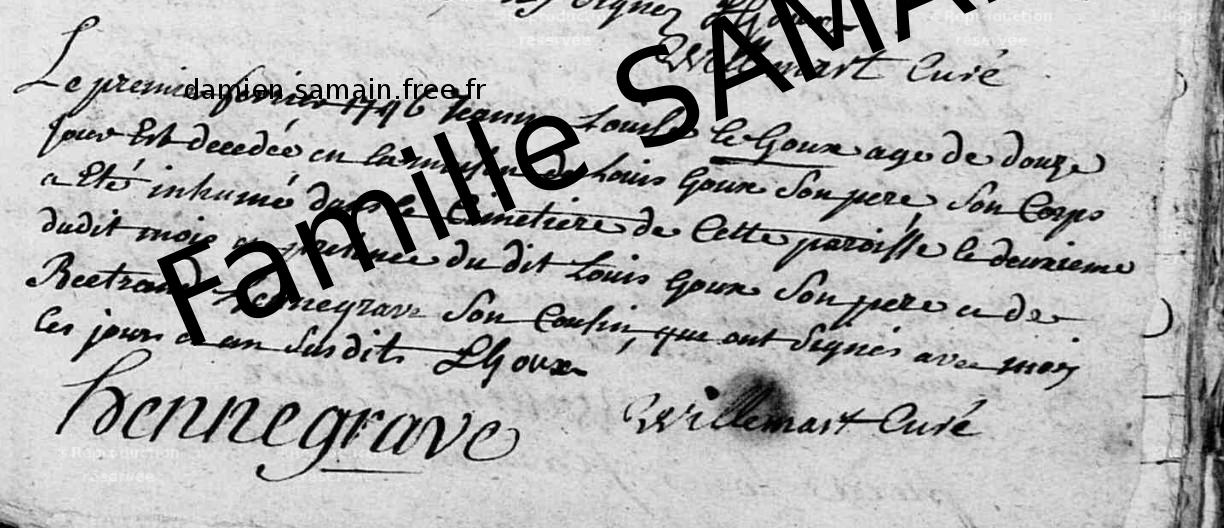 Willemart Curé
Le premier fevrier 1746 Louise le Goux age de douze
jour Est decedée en la maison de Louis Goux Son pere Son Corps
a Eté inhumé dans le Cimetiere de Cette paroisse le deuxieme
dudit mois du dit Louis Goux Son pere et de
Bertrand hennegrave Son Cousin, qui ont Signés avec moy
les jours et an Susdits LGoux
hennegrave
Willemart Curé
damien.samain.free.fr
Famille SAMA
Reproduction
réservée
Reproduction
réservée